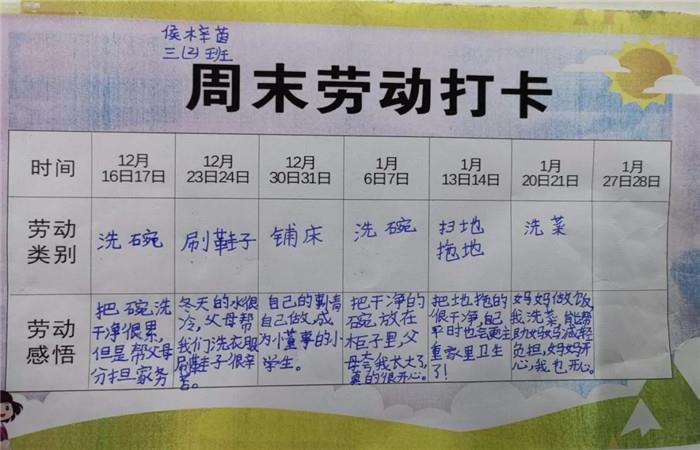 侯梓茵
三(2)班
周末劳动打卡
时间
12月
16日17日
12月
23日24日
12月
30日31日
1月
6日7日
1月
13日14日
1月
20日21日
1月
27日28日
劳动
类别
洗碗
刷鞋子
铺床
洗碗
扫地
拖地
洗菜
劳动
感悟
把碗洗
干净很累,
但是帮父母
分担家务
冬天的水很
冷,父母帮
我们洗衣服
刷鞋子很辛
苦。
自己的事情
自己做,成
为小懂事的小
学生。
把干净的
碗放在
柜子里,父
母夸我长大了,
真的很开心。
把地拖的
很干净,自己
平时也会更注
重家里卫生
了!
妈妈做饭,
我洗菜,能帮
助妈妈减轻
负担,妈妈开
心,我也开心。